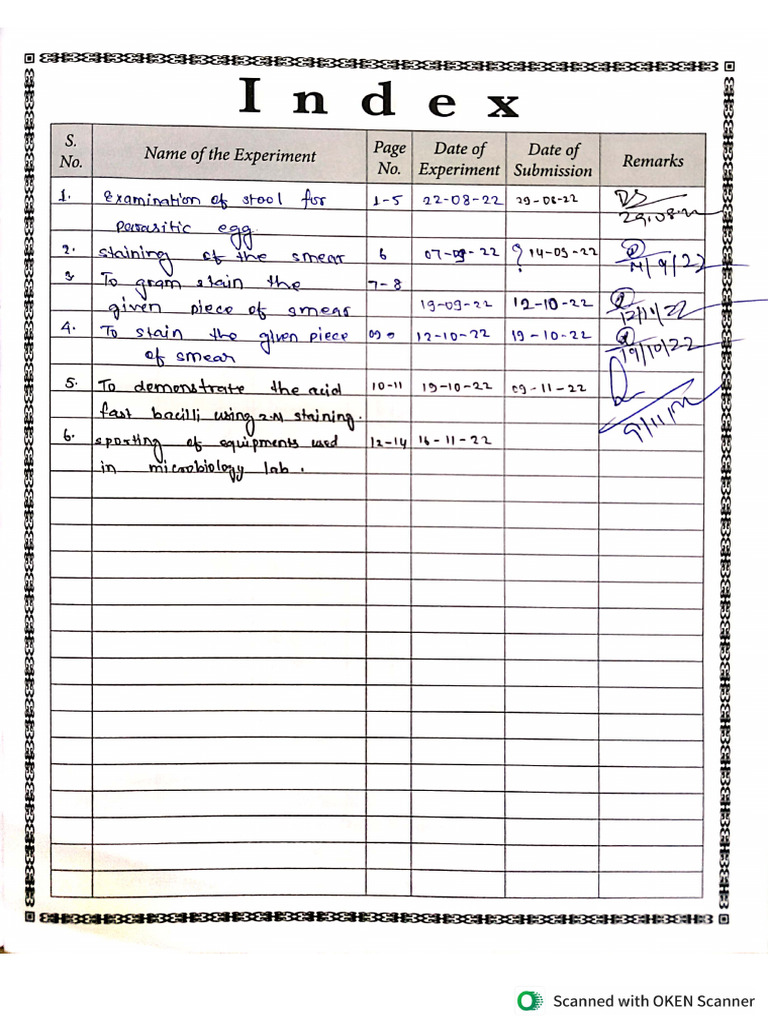 Index
S. No. Name of the Experiment Page No. Date of Experiment Date of Submission Remarks
1. Examination of stool for 1-5 22-08-22 29-08-22
parasitic egg. 29.08.22
2. staining of the smear 6 07-09-22 ? 14-09-22 14/9/22
3 To gram stain the 7-8
given piece of smear 19-09-22 12-10-22 12/10/22
4. To stain the given piece 09 12-10-22 19-10-22 19/10/22
of smear
5. To demonstrate the acid 10-11 19-10-22 09-11-22
fast bacilli using Z.N staining. 9/11/22
6. sporting of equipments used 12-14 16-11-22
in microbiology lab.
Scanned with OKEN Scanner